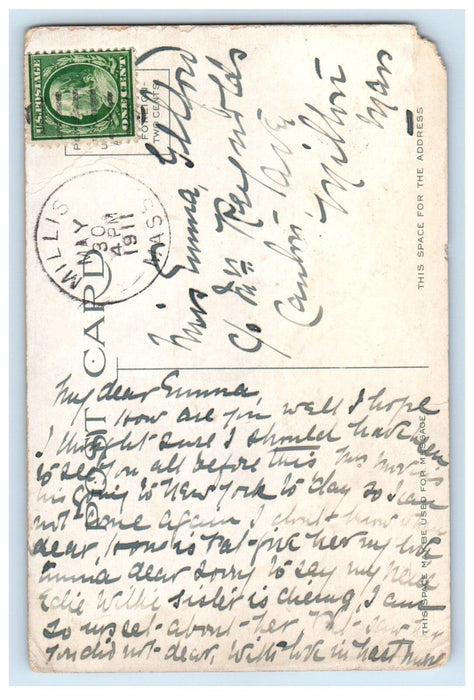 U.S. POSTAGE
ONE CENT
FOREIGN
TWO CENTS
MILLIS
MAY
30
4 PM
1911
MASS
POST CARD
THIS SPACE FOR THE ADDRESS
THIS SPACE MAY BE USED FOR MESSAGE
Miss Emma
c/o Mrs Reynolds
Canton Ave
Milton
Mass
My dear Emma,
How are you well I hope
I thought sure I should have
to see you all before this Mrs
is going to New York to day so I am
again I don't know
dear, How is give her my love
Emma dear sorry to say my
Edie Willis sister is dieing, I am
so upset about her
you did not dear, With love in hast